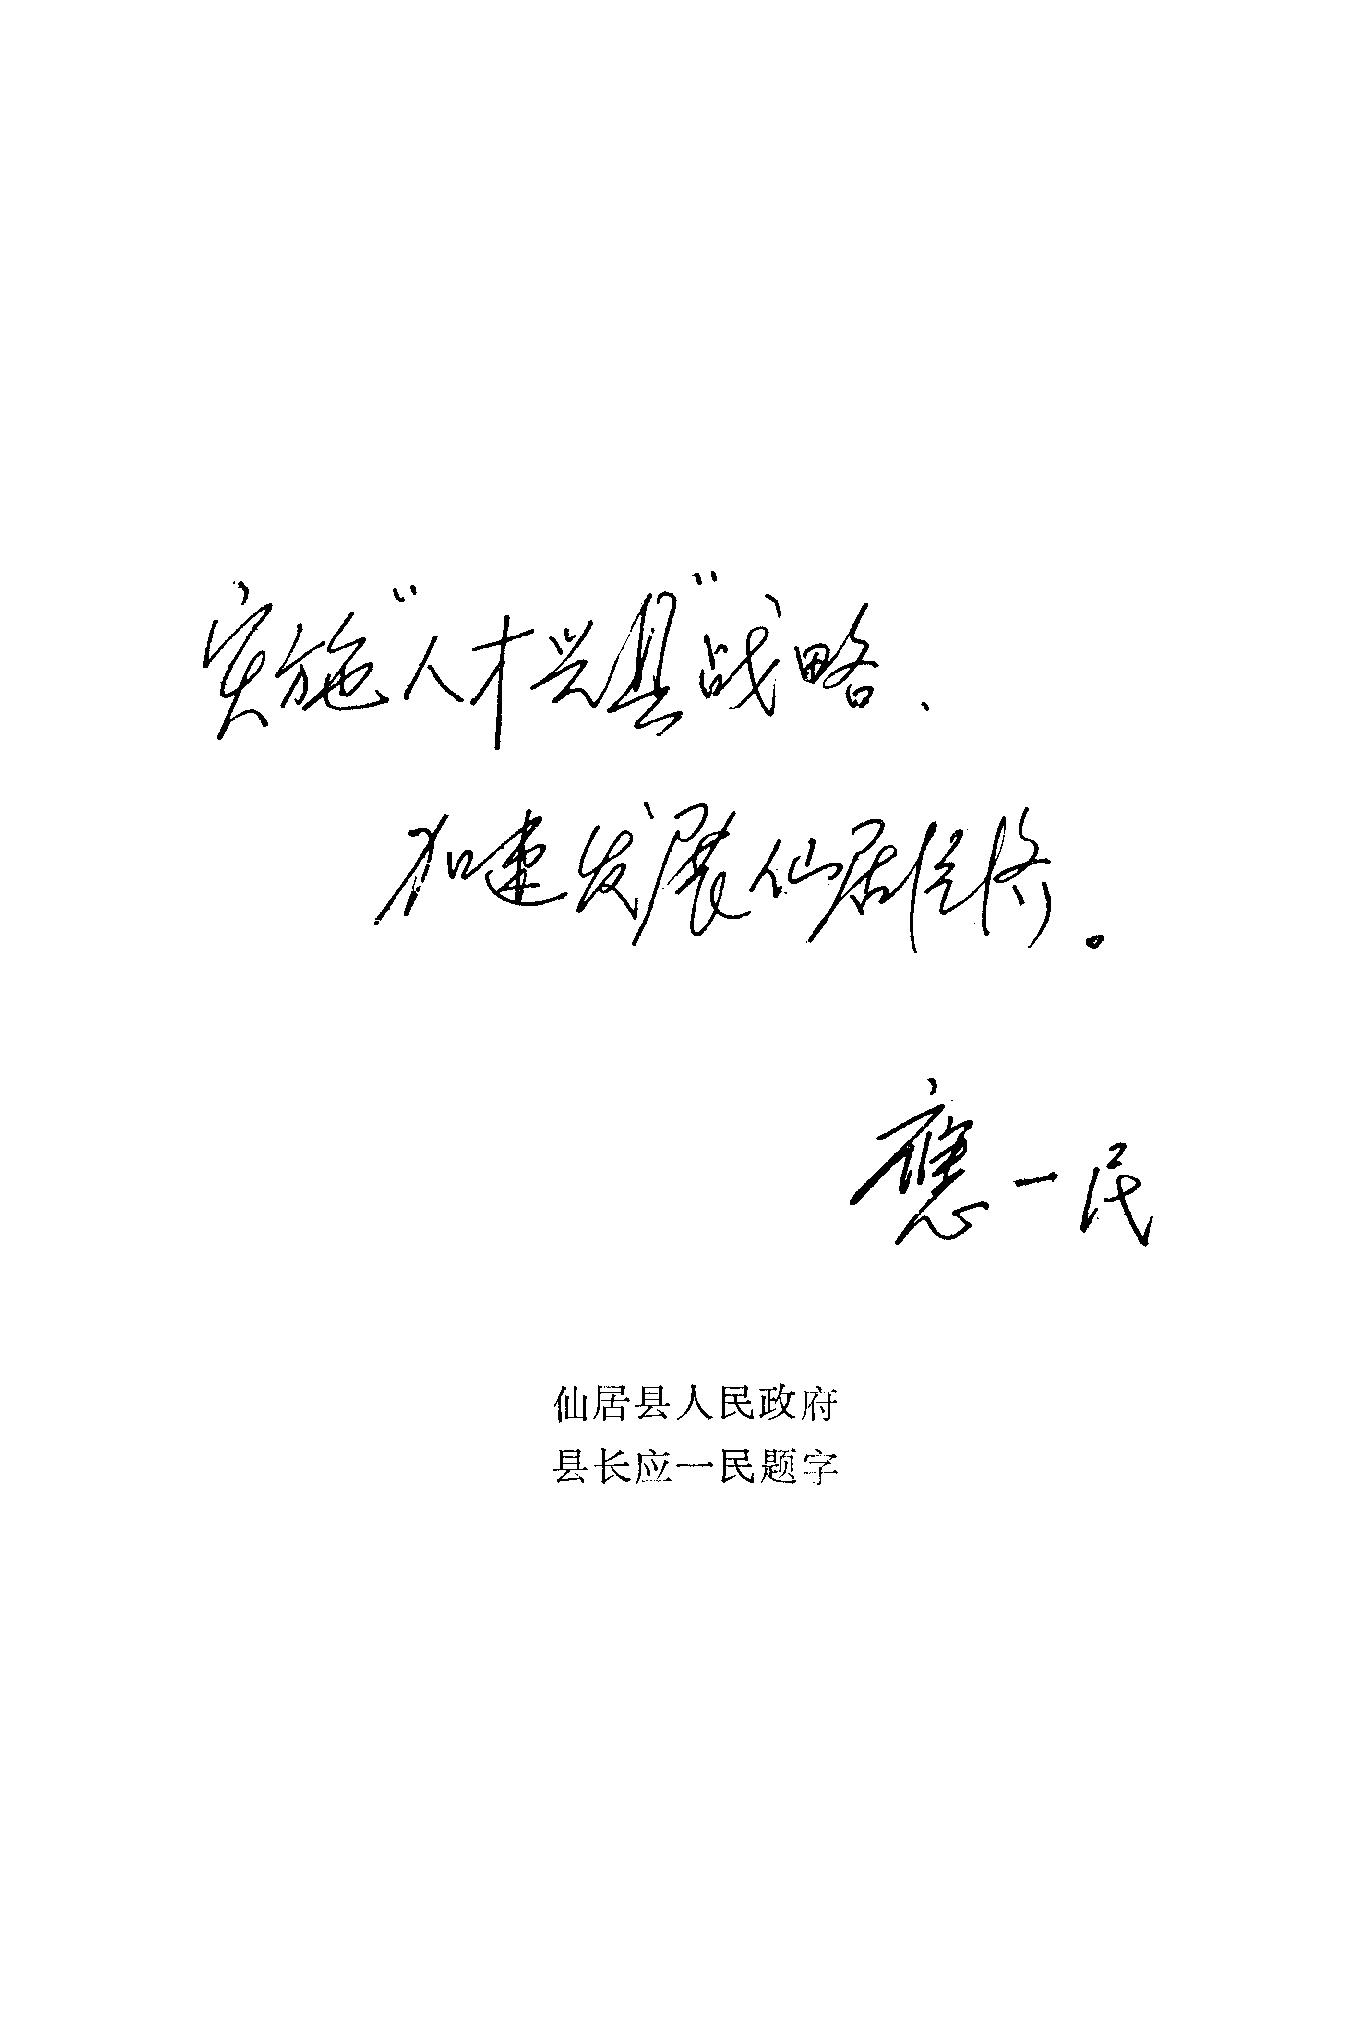 实施“人才兴县”战略、
加速发展仙居经济。
應一民
仙居县人民政府
县长应一民题字